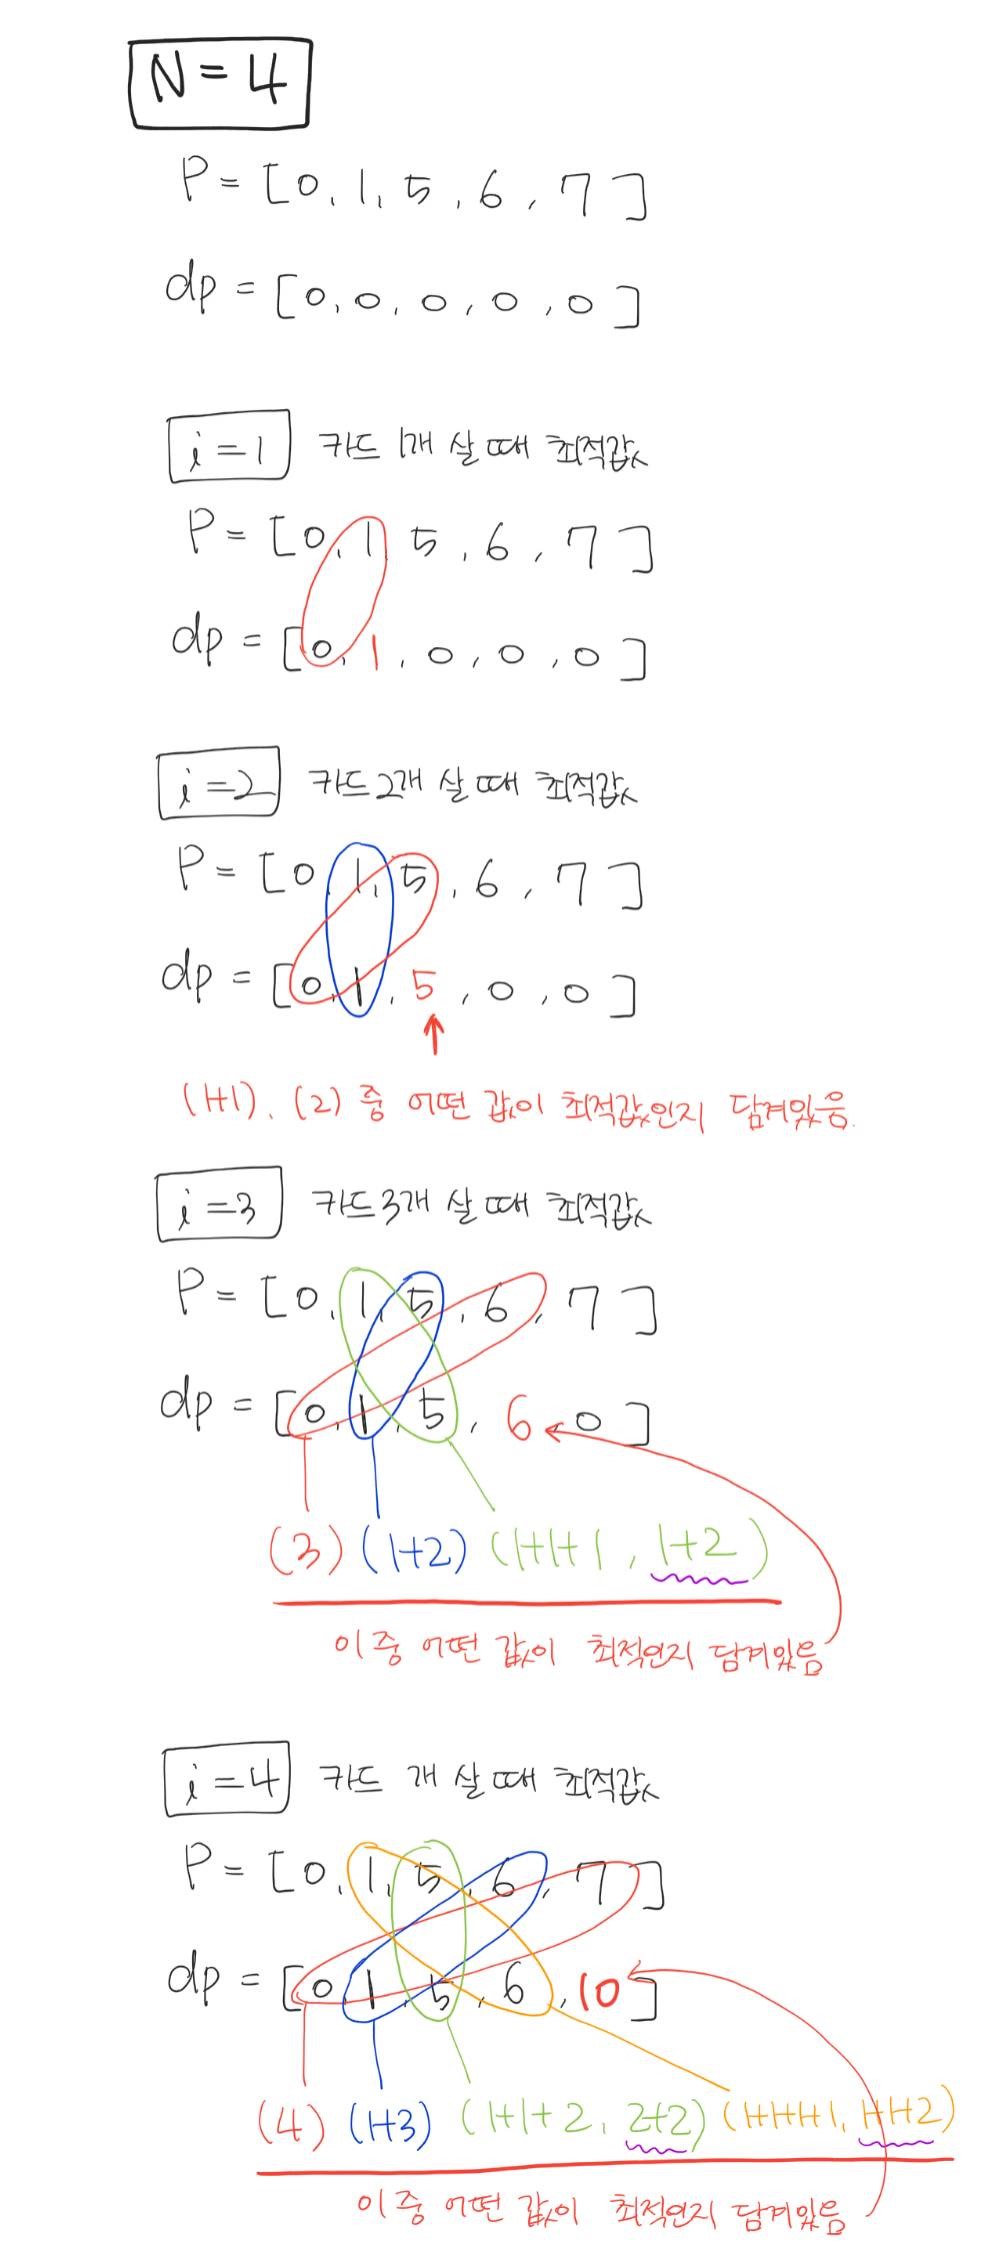 N=4
P = [0, 1, 5, 6, 7]
dp = [0, 0, 0, 0, 0]
i=1 카드 1개 살 때 최적값
P = [0, 1 5, 6, 7]
dp = [0, 1, 0, 0, 0]
i=2 카드 2개 살 때 최적값
P = [0 1, 5, 6, 7]
dp = [0, 1, 5, 0, 0]
(1+1), (2) 중 어떤 값이 최적값인지 담겨있음.
i=3 카드 3개 살 때 최적값
P = [0, 1, 5, 6, 7]
dp = [0, 1, 5, 6, 0]
(3) (1+2) (1+1+1, 1+2)
이 중 어떤 값이 최적인지 담겨있음
i=4 카드 개 살 때 최적값
P = [0, 1, 5, 6, 7]
dp = [0, 1, 5, 6, 10]
(4) (1+3) (1+1+2, 2+2) (1+1+1+1, 1+1+2)
이 중 어떤 값이 최적인지 담겨있음